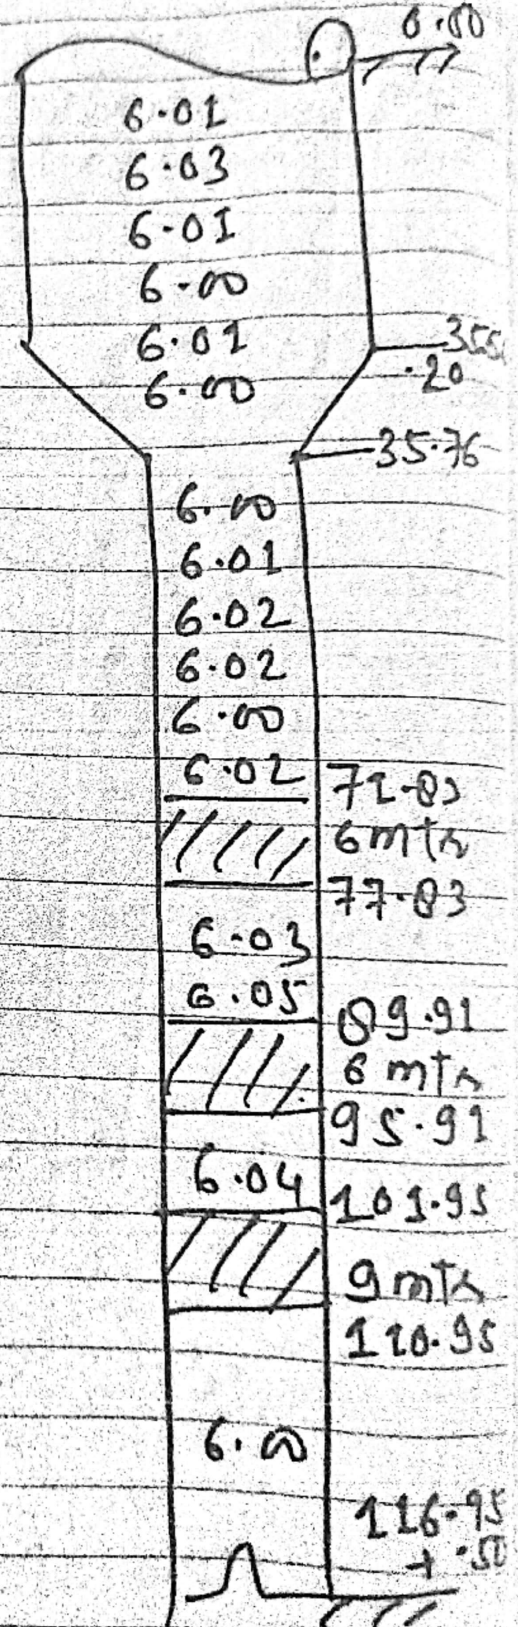 0.50
6.01
6.03
6.01
6.00
6.01 355
6.00 .20
35.76
6.00
6.01
6.02
6.02
6.00
6.02 71.83
6 mts
77.83
6.03
6.05 89.91
6 mts
95.91
6.04 101.95
9 mts
110.95
6.00
116.95
+ .50